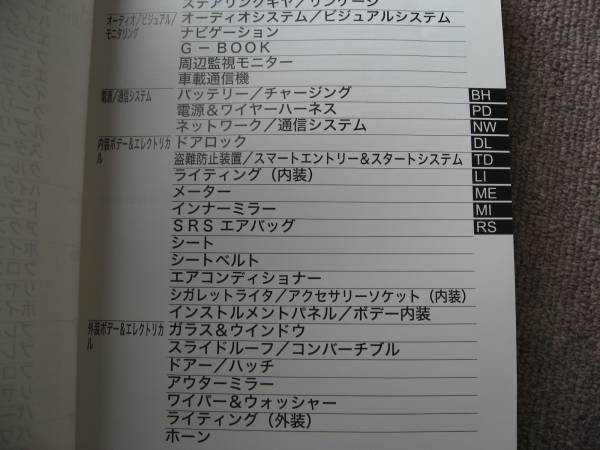 ステアリングギヤ／リンケージ
オーディオ／ビジュアル／モニタリング
オーディオシステム／ビジュアルシステム
ナビゲーション
Ｇ－ＢＯＯＫ
周辺監視モニター
車載通信機
電源／通信システム
バッテリー／チャージング BH
電源＆ワイヤーハーネス PD
ネットワーク／通信システム NW
内装ボデー＆エレクトリカル
ドアロック DL
盗難防止装置／スマートエントリー＆スタートシステム TD
ライティング（内装） LI
メーター ME
インナーミラー MI
ＳＲＳ エアバッグ RS
シート
シートベルト
エアコンディショナー
シガレットライタ／アクセサリーソケット（内装）
インストルメントパネル／ボデー内装
外装ボデー＆エレクトリカル
ガラス＆ウインドウ
スライドルーフ／コンバーチブル
ドアー／ハッチ
アウターミラー
ワイパー＆ウォッシャー
ライティング（外装）
ホーン